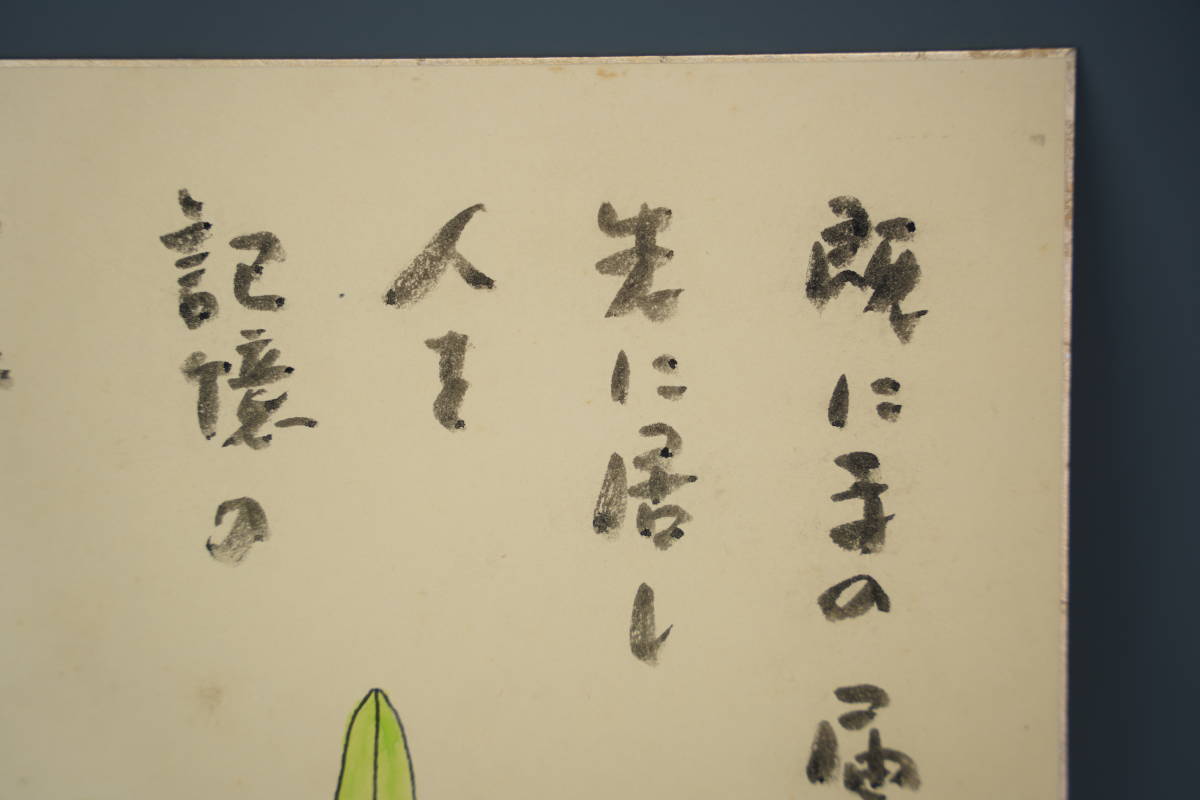 既に手の届
先に居し
人を
記憶の